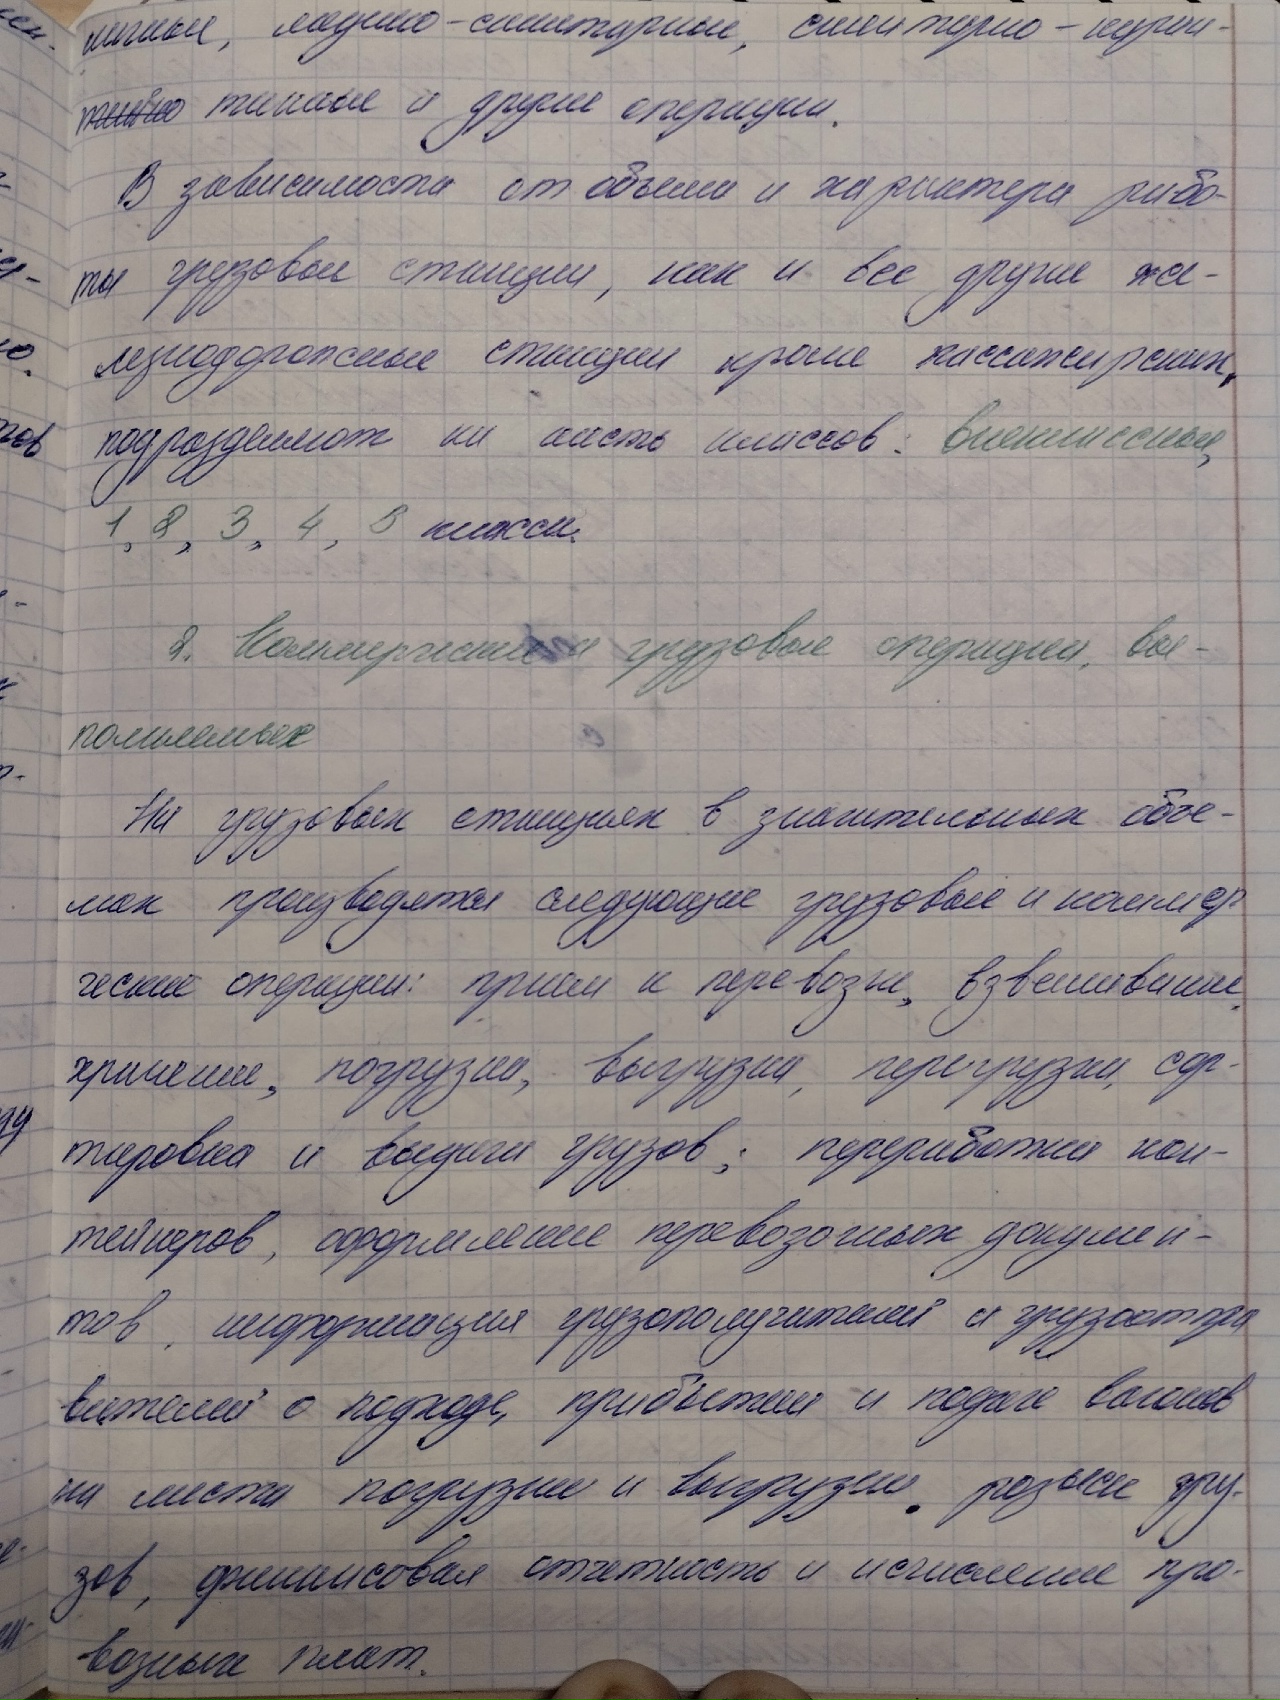 медико-санитарные, санитарно-каран-
тинные и другие операции.
В зависимости от объема и характера рабо-
ты грузовые станции, как и все другие же-
лезнодорожные станции кроме пассажирских,
подразделяют на шесть классов: внеклассные,
1, 2, 3, 4, 5 класса.
2. Коммерческие и грузовые операции, вы-
полняемые
На грузовых станциях в значительных объе-
мах производятся следующие грузовые и коммер
ческие операции: прием к перевозке, взвешивание,
хранение, погрузка, выгрузка, перегрузка, сор-
тировка и выдача грузов; переработка кон-
тейнеров, оформление перевозочных докумен-
тов, информация грузополучателей и грузоотпра
вителей о подходе, прибытии и подаче вагонов
на места погрузки и выгрузки, розыск гру-
зов, финансовая отчетность и исчисление про-
возных плат.